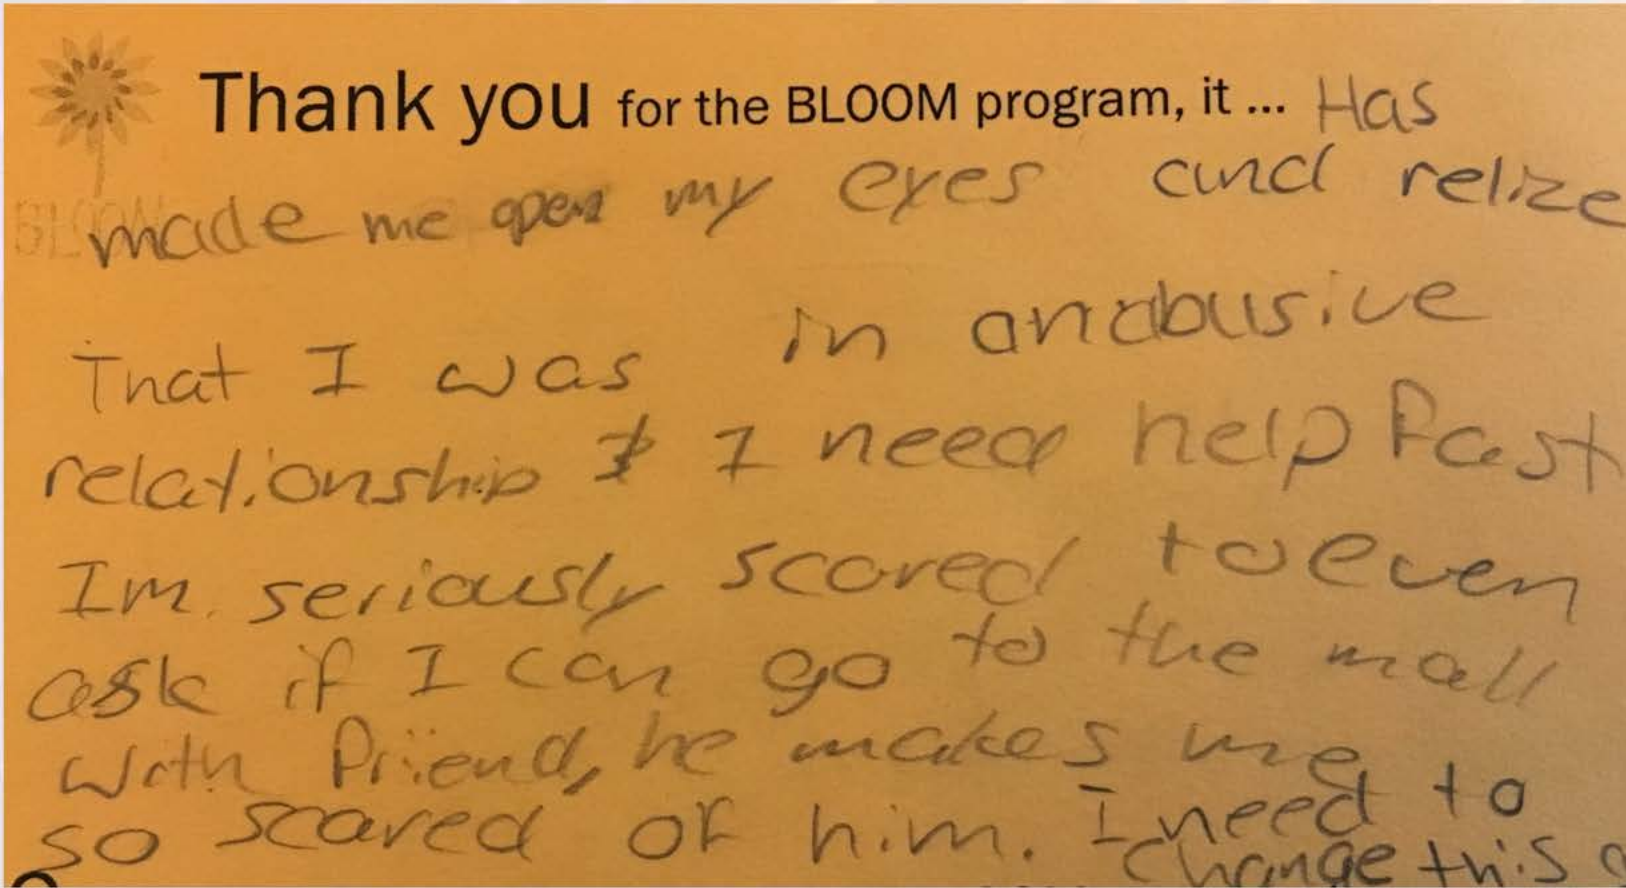 Thank you for the BLOOM program, it ... Has
made me open my eyes and relize
That I was in anabusive
relationship & I need help fast
Im seriously scared to even
ask if I can go to the mall
with friend, he makes me
so scared of him. I need to
change this